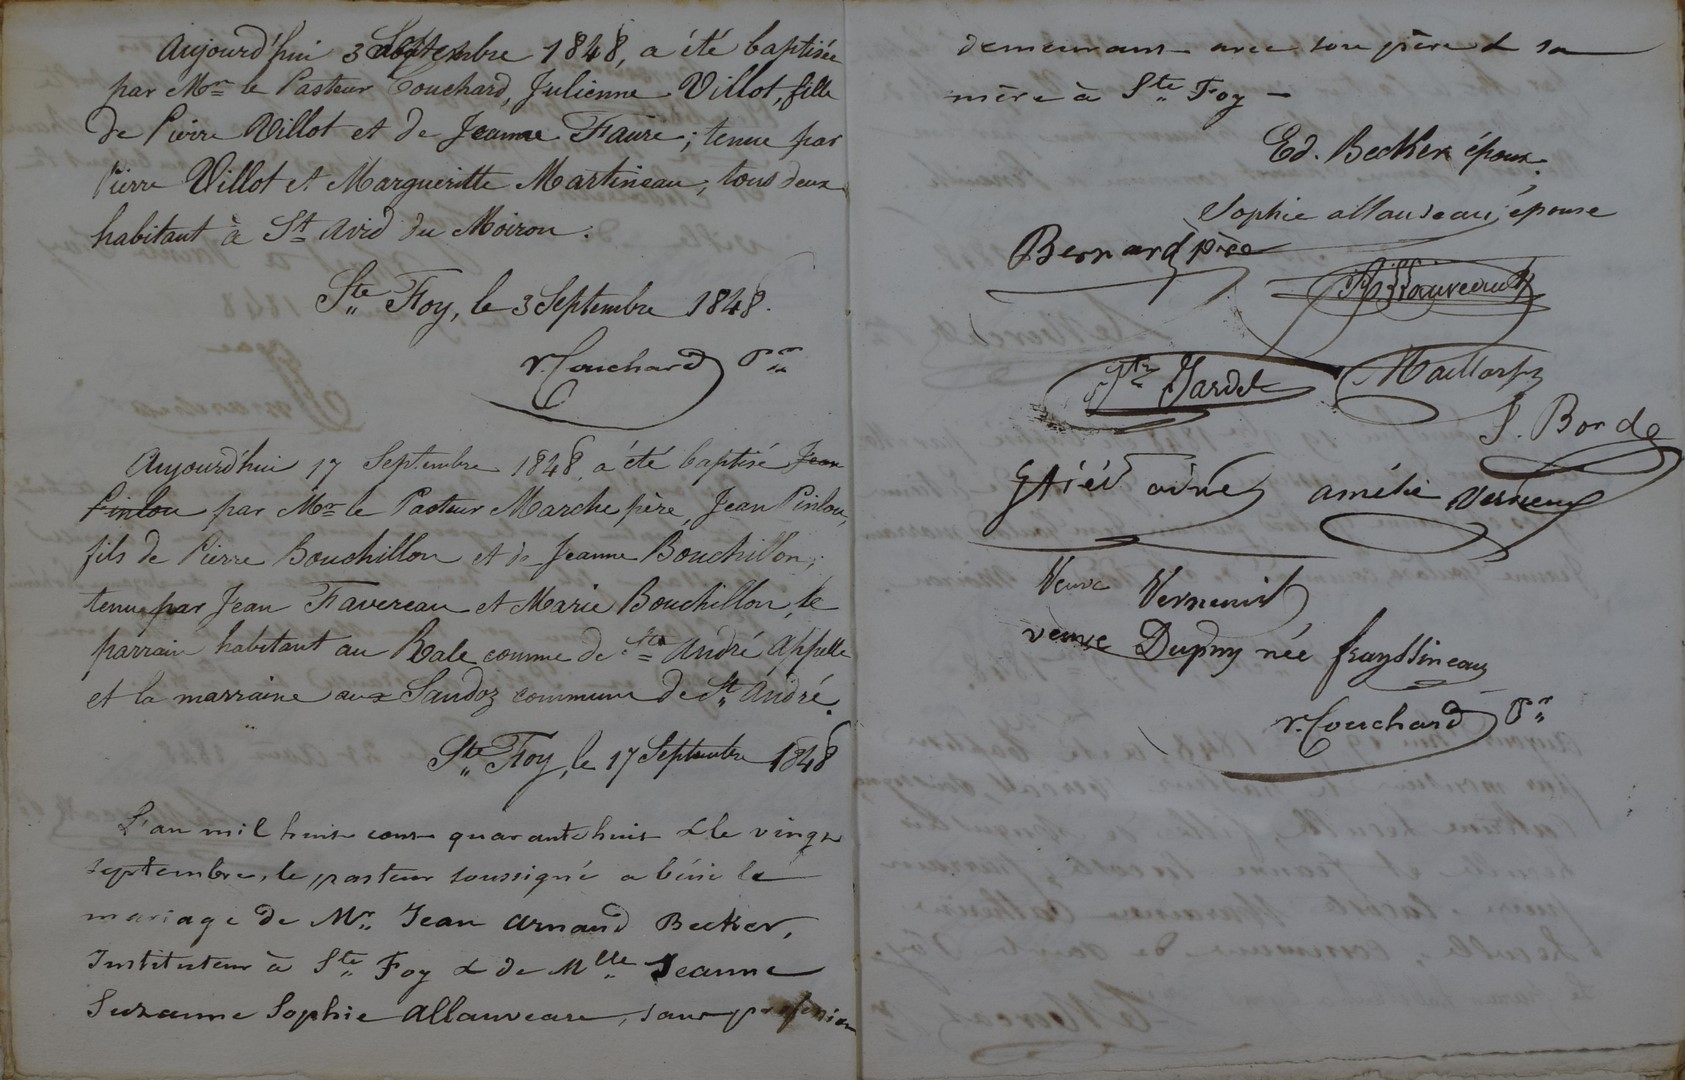 Aujourd'hui 3 Septembre 1848, a été baptisée
par Mr le Pasteur Couchard, Julienne Villot, fille
de Pierre Villot et de Jeanne Faure; tenue par
Pierre Villot et Margueritte Martineau, tous deux
habitant à St Avid du Moiron.
Ste Foy, le 3 Septembre 1848.
V. Couchard Pr
Aujourd'hui 17 Septembre 1848 a été baptisé Jean
Pinlou par Mr le Pasteur Marche père, Jean Pinlou,
fils de Pierre Bouchillon et de Jeanne Bouchillon;
tenu par Jean Favereau et Marie Bouchillon, le
parrain habitant au Rale comme de Ste André Appelle
et la marraine aux Sandoz commune de St André.
Ste Foy, le 17 Septembre 1848
L'an mil huit cent quarante huit & le vingt
septembre, le pasteur soussigné a béni le
mariage de Mr Jean Arnaud Becker,
Instituteur à Ste Foy & de Mlle Jeanne
Suzanne Sophie Allauveau, sans profession
demeurant avec son père & sa
mère à Ste Foy —
Ed. Becker époux
Sophie allauveau, épouse
Bernard père
Jardel
J. Borde
aîné amélie
Veuve Verneuil
veuve Dupuy née frayssineau
V. Couchard Pr